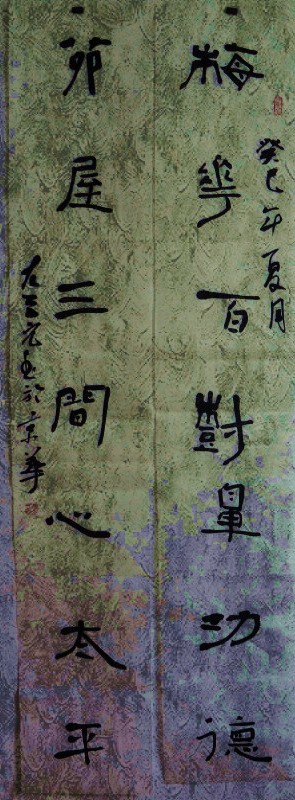 癸巳年夏月
梅華百樹鼻功德
茆屋三間心太平
書於京華